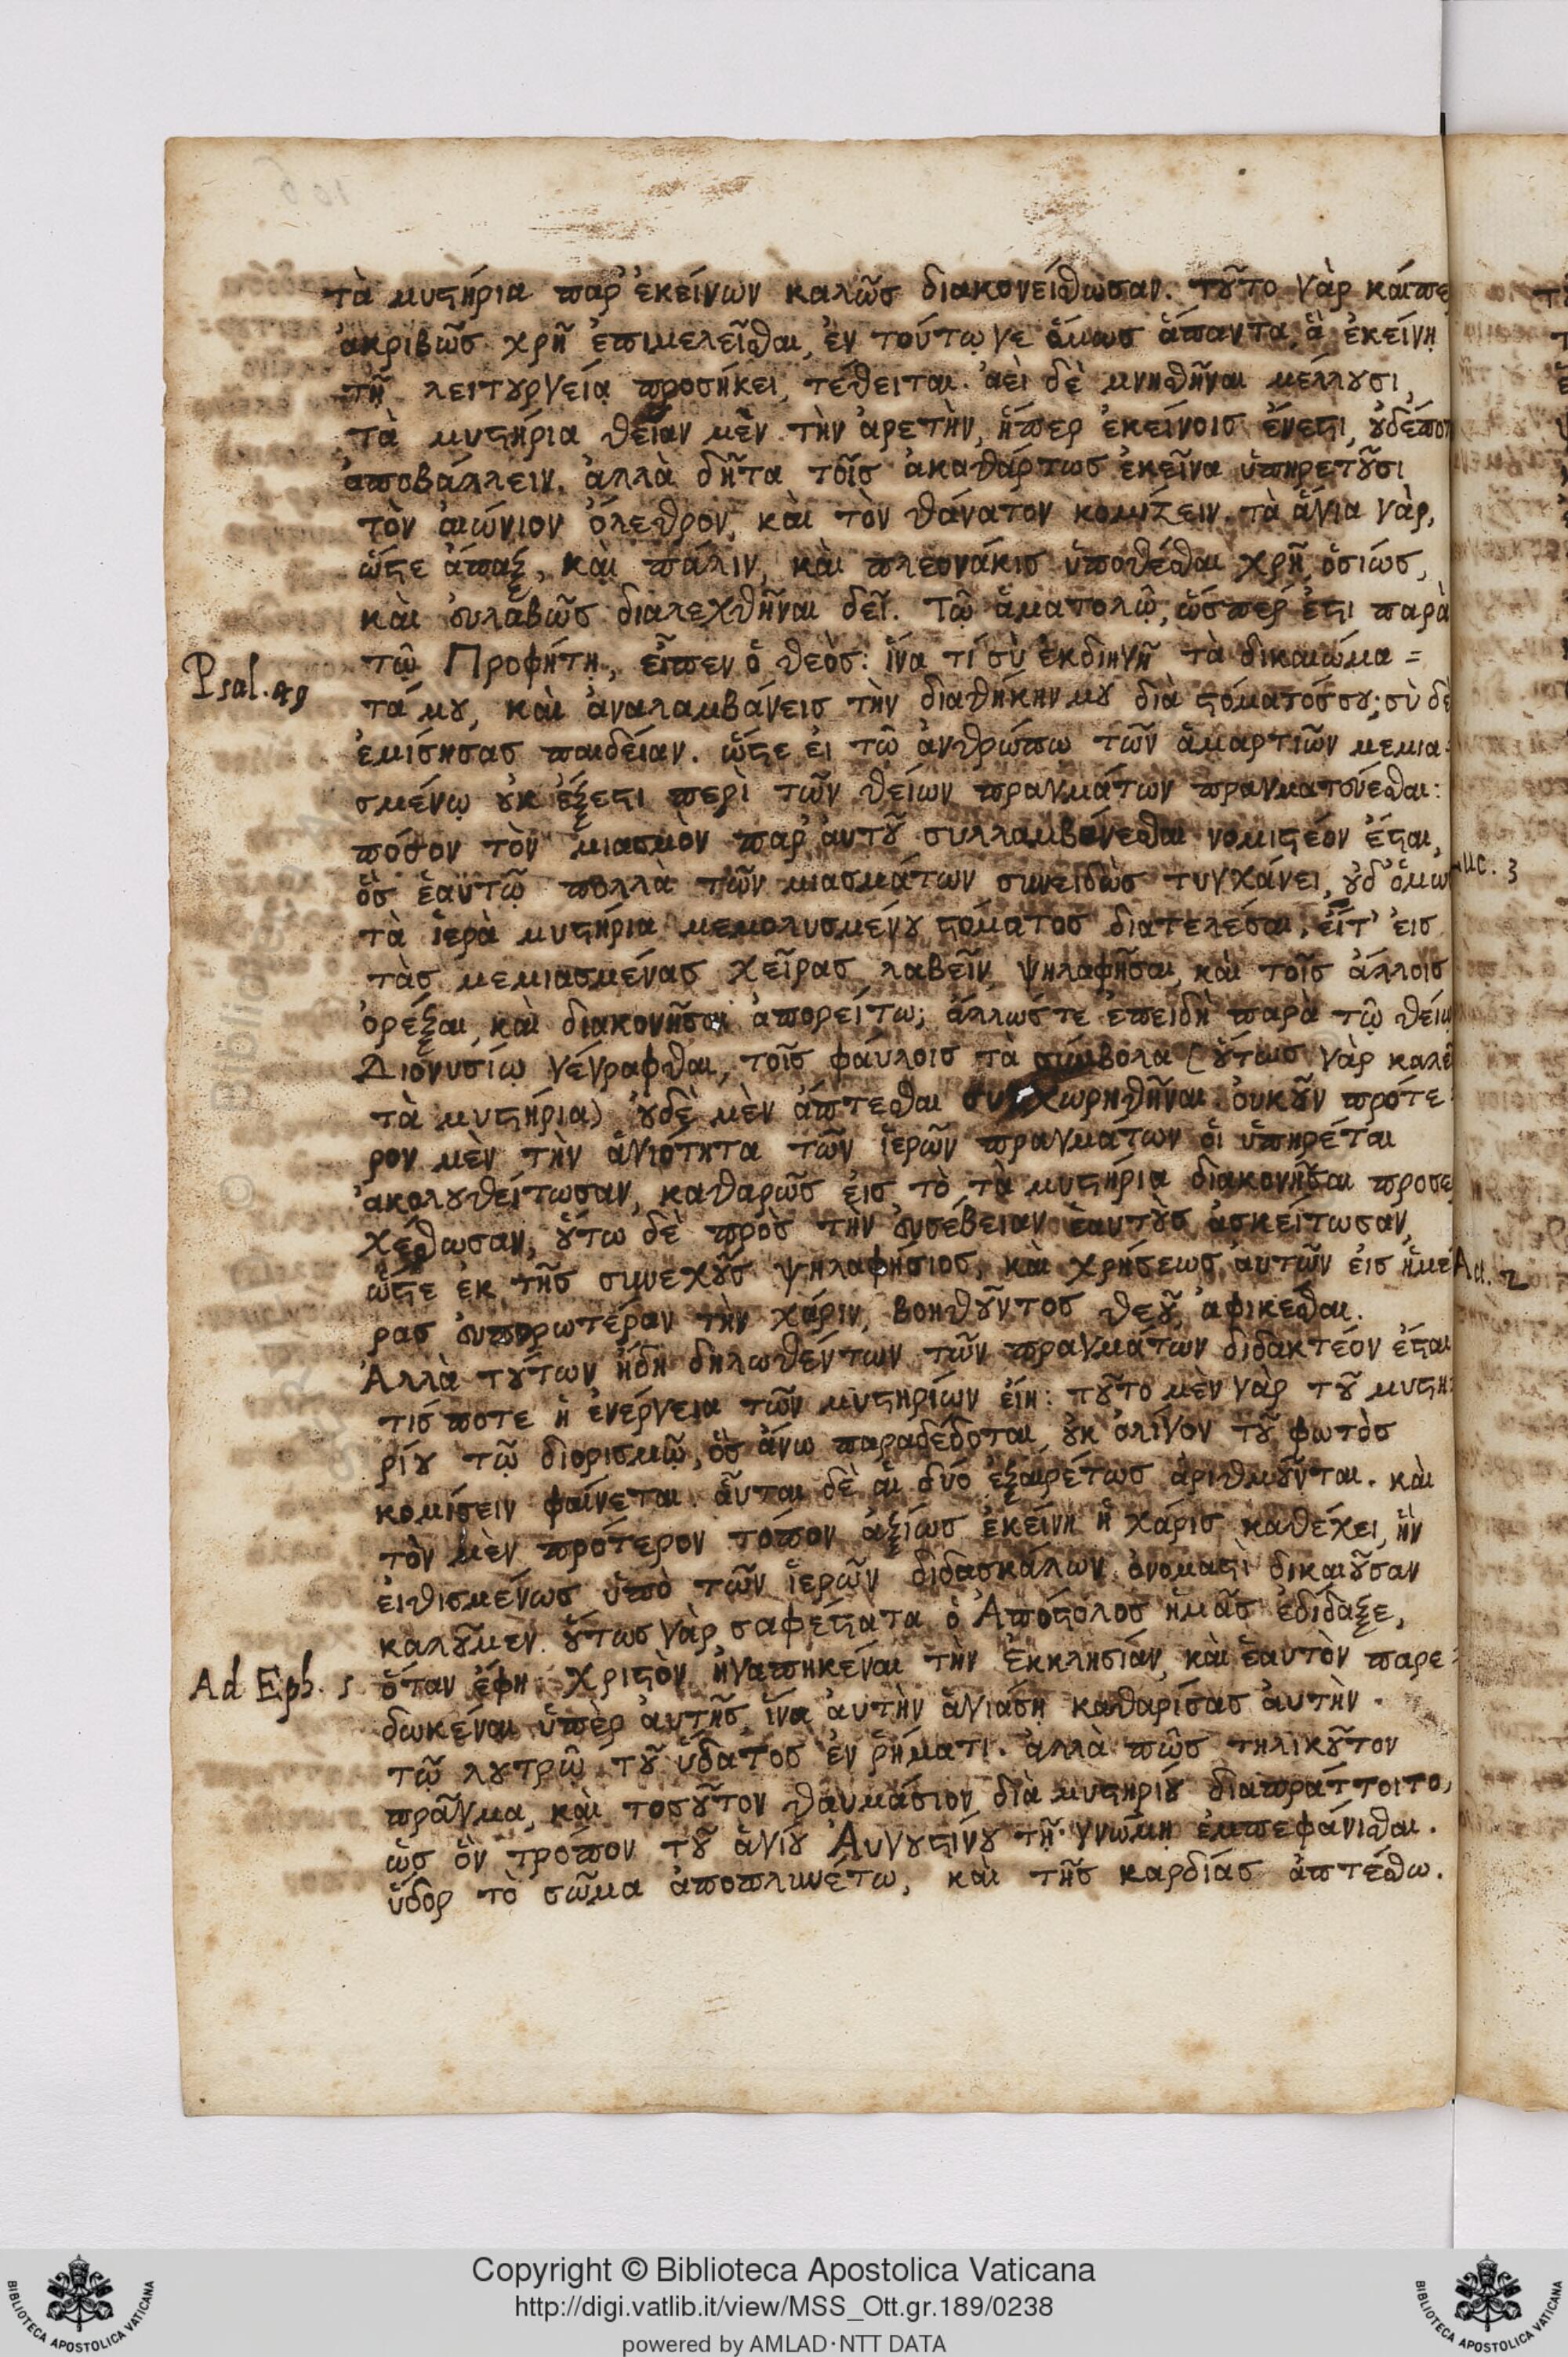 τὰ μυστήρια παρ' ἐκείνων καλῶς διακονείσθωσαν. τοῦτο γὰρ καίπε
ἀκριβῶς χρῆ ἐπιμελεῖσθαι, ἐν τούτῳ γε ὅμως ἅπαντα, ἃ ἐκείνῃ
τῇ λειτουργείᾳ προσήκει, τέθειται. ἀεὶ δὲ μνησθῆναι μέλλουσι,
τὰ μυστήρια θείαν μὲν τὴν ἀρετὴν, ἥπερ ἐκείνοις ἔνεστι, οὐδέποτ
ἀποβάλλειν. ἀλλὰ δῆτα τοῖς ἀκαθάρτως ἐκεῖνα ὑπηρετοῦσι
τὸν αἰώνιον ὄλεθρον, καὶ τὸν θάνατον κομίζειν. τὰ ἅγια γὰρ,
ὥστε ἅπαξ, καὶ πάλιν, καὶ πλεονάκις ὑποθέσθαι χρῆ, ὁσίως,
καὶ εὐλαβῶς διαλεχθῆναι δεῖ. Τῷ ἁματολῷ, ὥσπερ ἔστι παρὰ
τῷ Προφήτῃ, εἶπεν ὁ θεὸς: ἵνα τί σὺ ἐκδιηγῇ τὰ δικαιώμα=
τά μου, καὶ ἀναλαμβάνεις τὴν διαθήκην μου διὰ στόματός σου; σὺ δὲ
Psal. 49
ἐμίσησας παιδείαν. ὥστε εἰ τῷ ἀνθρώπῳ τῶν ἁμαρτιῶν μεμια=
σμένῳ οὐκ ἔξεστι περὶ τῶν θείων πραγμάτων πραγματεύεσθαι:
πόσον τὸν μιασμὸν παρ' αὐτοῦ συλλαμβάνεσθαι νομιστέον ἔσται,
ὃς ἑαυτῷ πολλὰ τῶν μιασμάτων συνειδὼς τυγχάνει, οὐδ' ὅμω
τὰ ἱερὰ μυστήρια μεμολυσμένου στόματος διατελέσαι, εἶτ' εἰς
τὰς μεμιασμένας χεῖρας λαβεῖν, ψηλαφῆσαι, καὶ τοῖς ἄλλοις
ὀρέξαι, καὶ διακονῆσαι ἀπορείτω; ἄλλωστε ἐπειδὴ παρὰ τῷ θείῳ
Διονυσίῳ γέγραφθαι, τοῖς φαύλοις τὰ σύμβολα (οὕτως γὰρ καλεῖ
τὰ μυστήρια) οὐδὲ μὲν ἅπτεσθαι συγχωρηθῆναι. οὐκοῦν πρότε
ρον μὲν τὴν ἁγιότητα τῶν ἱερῶν πραγμάτων οἱ ὑπηρέται
ἀκολουθείτωσαν, καθαρῶς εἰς τὸ τὰ μυστήρια διακονῆσαι προσε
χέσθωσαν, οὕτω δὲ πρὸς τὴν εὐσέβειαν ἑαυτοὺς ἀσκείτωσαν,
ὥστε ἐκ τῆς συνεχοῦς ψηλαφήσιος, καὶ χρήσεως αὐτῶν εἰς ἡμέ
ρας εὐπορωτέραν τὴν χάριν, βοηθοῦντος θεοῦ, ἀφικεσθαι.
Ἀλλὰ τούτων ἤδη δηλωθέντων τῶν πραγμάτων διδακτέον ἔσται
τίς ποτε ἡ ἐνέργεια τῶν μυστηρίων εἴη: τοῦτο μὲν γὰρ τοῦ μυστη=
ρίου τῷ διορισμῷ, ὃς ἄνω παραδέδοται, οὐκ ὀλίγον τοῦ φωτὸς
κομίσειν φαίνεται. αὗται δὲ αἱ δύο ἐξαιρέτως ἀριθμοῦνται. καὶ
τὸν μὲν πρότερον τόπον ἀξίως ἐκείνη ἡ χάρις καθέχει, ἣν
εἰθισμένως ὑπὸ τῶν ἱερῶν διδασκάλων ὀνομαστὶ δικαιοῦσαν
καλοῦμεν. οὕτως γὰρ σαφέστατα ὁ Ἀπόστολος ἡμᾶς ἐδίδαξε,
Ad Eph. 5
ὅταν ἔφη Χριστὸν ἠγαπηκέναι τὴν Ἐκκλησίαν, καὶ ἑαυτὸν παρε=
δωκέναι ὑπὲρ αὐτῆς, ἵνα αὐτὴν ἁγιάσῃ καθαρίσας αὐτὴν
τῷ λουτρῷ τοῦ ὕδατος ἐν ῥήματι. ἀλλὰ πῶς τηλικοῦτον
πρᾶγμα, καὶ τοσοῦτον θαυμάσιον διὰ μυστηρίου διαπράττοιτο,
ὡς ὃν τρόπον τοῦ ἁγίου Ἀυγουστίνου τῇ γνώμῃ ἐμπεφάνισθαι.
ὕδορ τὸ σῶμα ἀποπλυνέτω, καὶ τῆς καρδίας ἁπτέσθω.
Act. 2
Copyright © Biblioteca Apostolica Vaticana
http://digi.vatlib.it/view/MSS_Ott.gr.189/0238
powered by AMLAD·NTT DATA
BIBLIOTECA APOSTOLICA VATICANA
BIBLIOTECA APOSTOLICA VATICANA